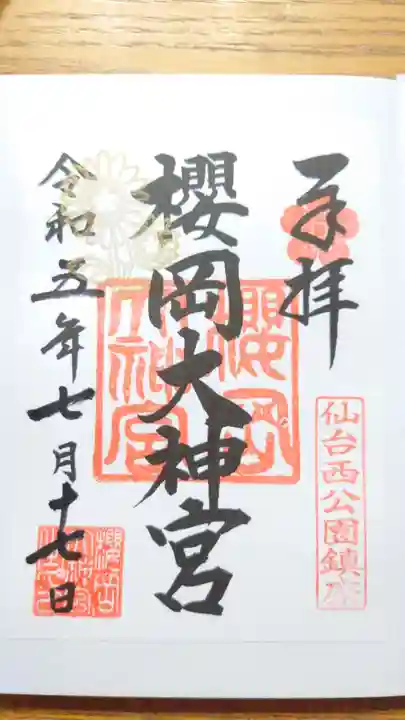 奉拝
仙台西公園鎮座
櫻岡大神宮
櫻岡大神宮
令和五年七月十七日